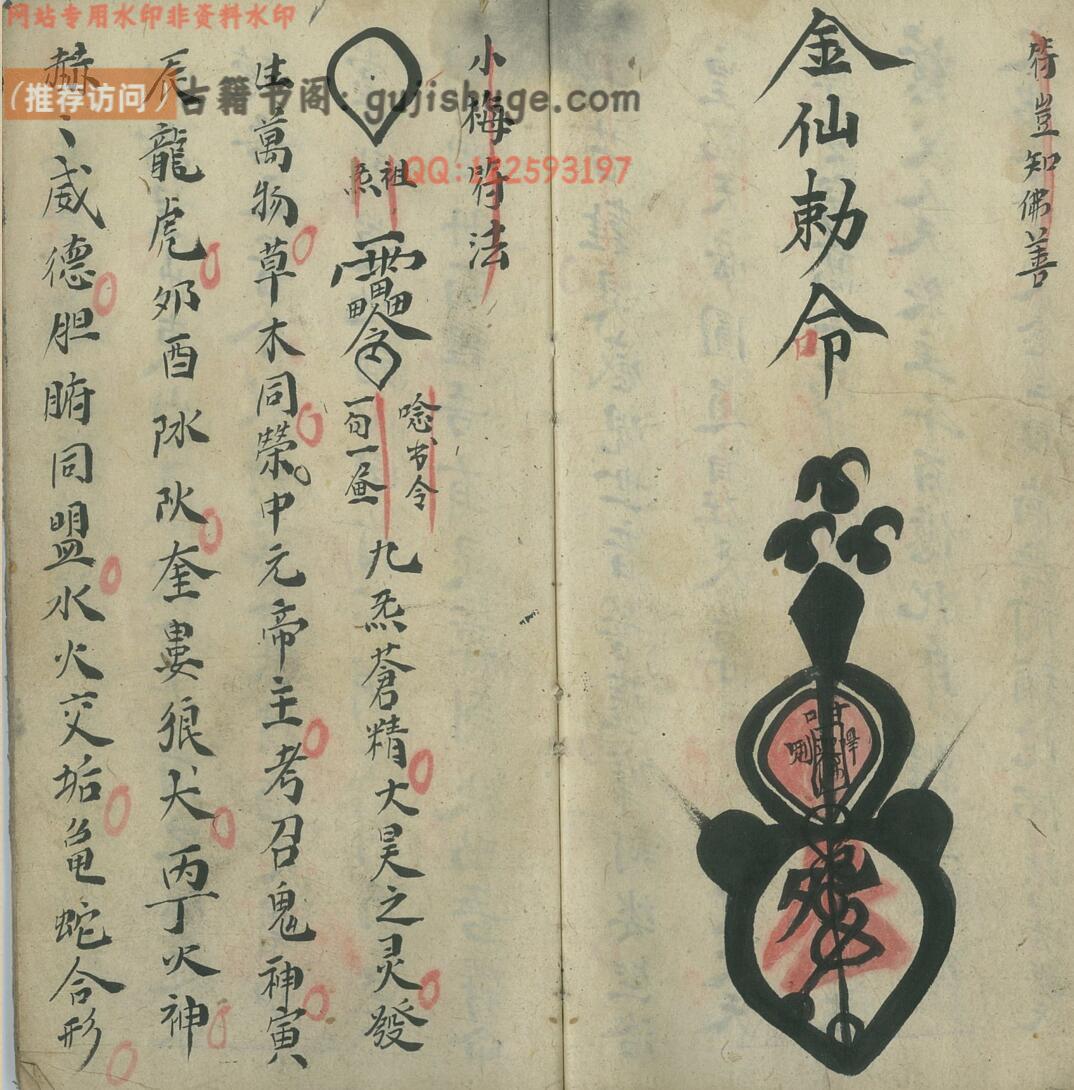 符豈知佛善
金仙勅命
小梅符法
祖炁
唸咒令
一句一畫
九炁蒼精大昊之灵發
生萬物草木同榮中元帝主考召鬼神寅
辰龍虎夘酉
奎婁狼犬丙丁火神
赫〻威德胆腑同盟水火交垢黽蛇合形
网站专用水印非资料水印
（推荐访问）古籍书阁：gujishuge.com